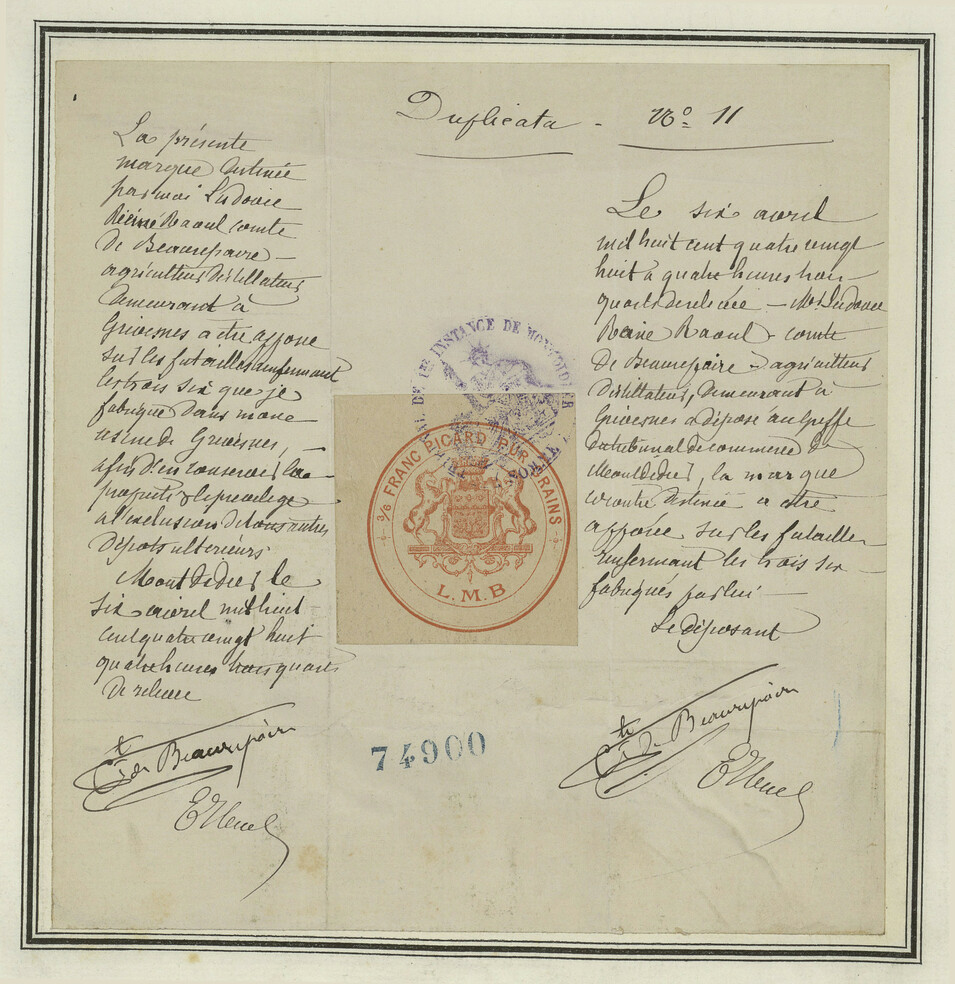 Duplicata - No 11
La présente
marque destinée
par moi Ludovic
Réene Raoul comte
de Beaurepaire -
agriculteur distillateur
demeurant à
Grivesnes a être apposée
sur les futailles renfermant
les trois six que je
fabrique dans mon
usine de Grivesnes,
afin d'en conserver la
propriété & le privilège
à l'exclusion de tous autres
dépots ultérieurs
Montdidier le
six avril mil huit
cent quatre vingt huit
quatre heures trois quarts
de relevée
Cte de Beaurepaire
3/6 FRANC PICARD PUR GRAINS
L.M.B
DE 1re INSTANCE DE MONTDIDIER
74900
Le six avril
mil huit cent quatre vingt
huit à quatre heures trois
quarts de relevée - Mr Ludovic
Réene Raoul - comte
de Beaurepaire - agriculteur
distillateur, demeurant à
Grivesnes a déposé au greffe
du tribunal de commerce de
Montdidier, la marque
ci contre destinée a être
apposée sur les futailles
renfermant les trois six -
fabriqués par lui -
Le déposant
Cte de Beaurepaire